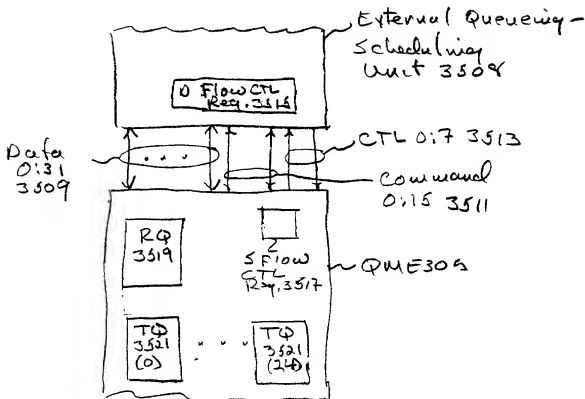 External Queueing-
Scheduling
Unit 3508
D Flow CTL
Reg. 3515
Data
0:31
3509
CTL 0:7 3513
Command
0:15 3511
RQ
3519
S Flow
CTL
Reg. 3517
QME305
TQ
3521
(0)
TQ
3521
(24)